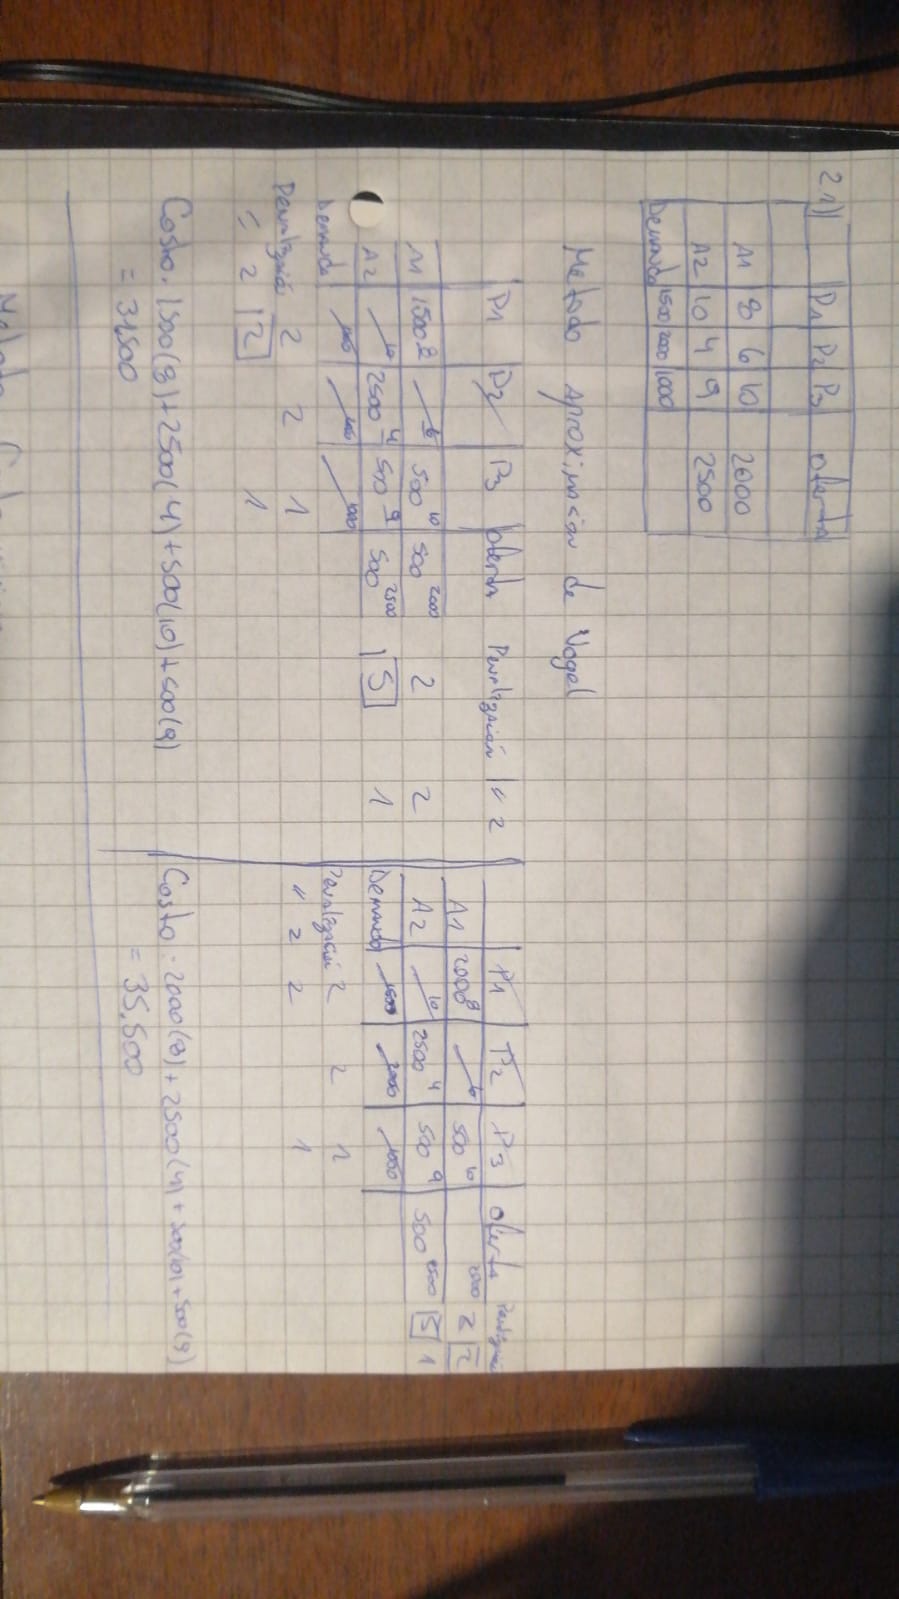 2.1)
P1 P2 P3 oferta
A1 8 6 10 2000
A2 10 4 9 2500
Demanda 1500 2000 1000
Metodo Aproximación de Vogel
P1 P2 P3 oferta Penalización 1° 2
A1 1500 8 6 500 10 500 2000 2 2
A2 10 2500 4 500 9 500 2500 5 1
Demanda 1000
Penalización 2 2 1
" 2 2 1
Costo: 1500(8)+2500(4)+500(10)+500(9)
= 31,500
P1 P2 P3 oferta
A1 2000 8 6 500 10 2000 2 2
A2 10 2500 4 500 9 500 2500 5 1
Demanda 1500 2000 1000
Penalización 2 2 1
" 2 2 1
Costo: 2000(8) + 2500(4) + 500(10) + 500(9)
= 35,500